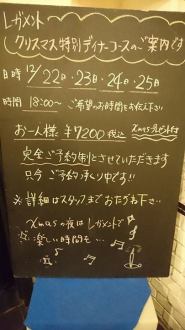 レガメント
クリスマス特別ディナーコースのご案内です
日時 12/22日・23日・24日・25日
時間 18:00〜 ご希望のお時間をお伝え下さい
お一人様 ¥7200税込 Xmasプレゼント付
完全ご予約制とさせていただきます
只今ご予約承り中です!!
※詳細はスタッフまでおたずね下さい
Xmasの夜はレガメントで
楽しい時間を…